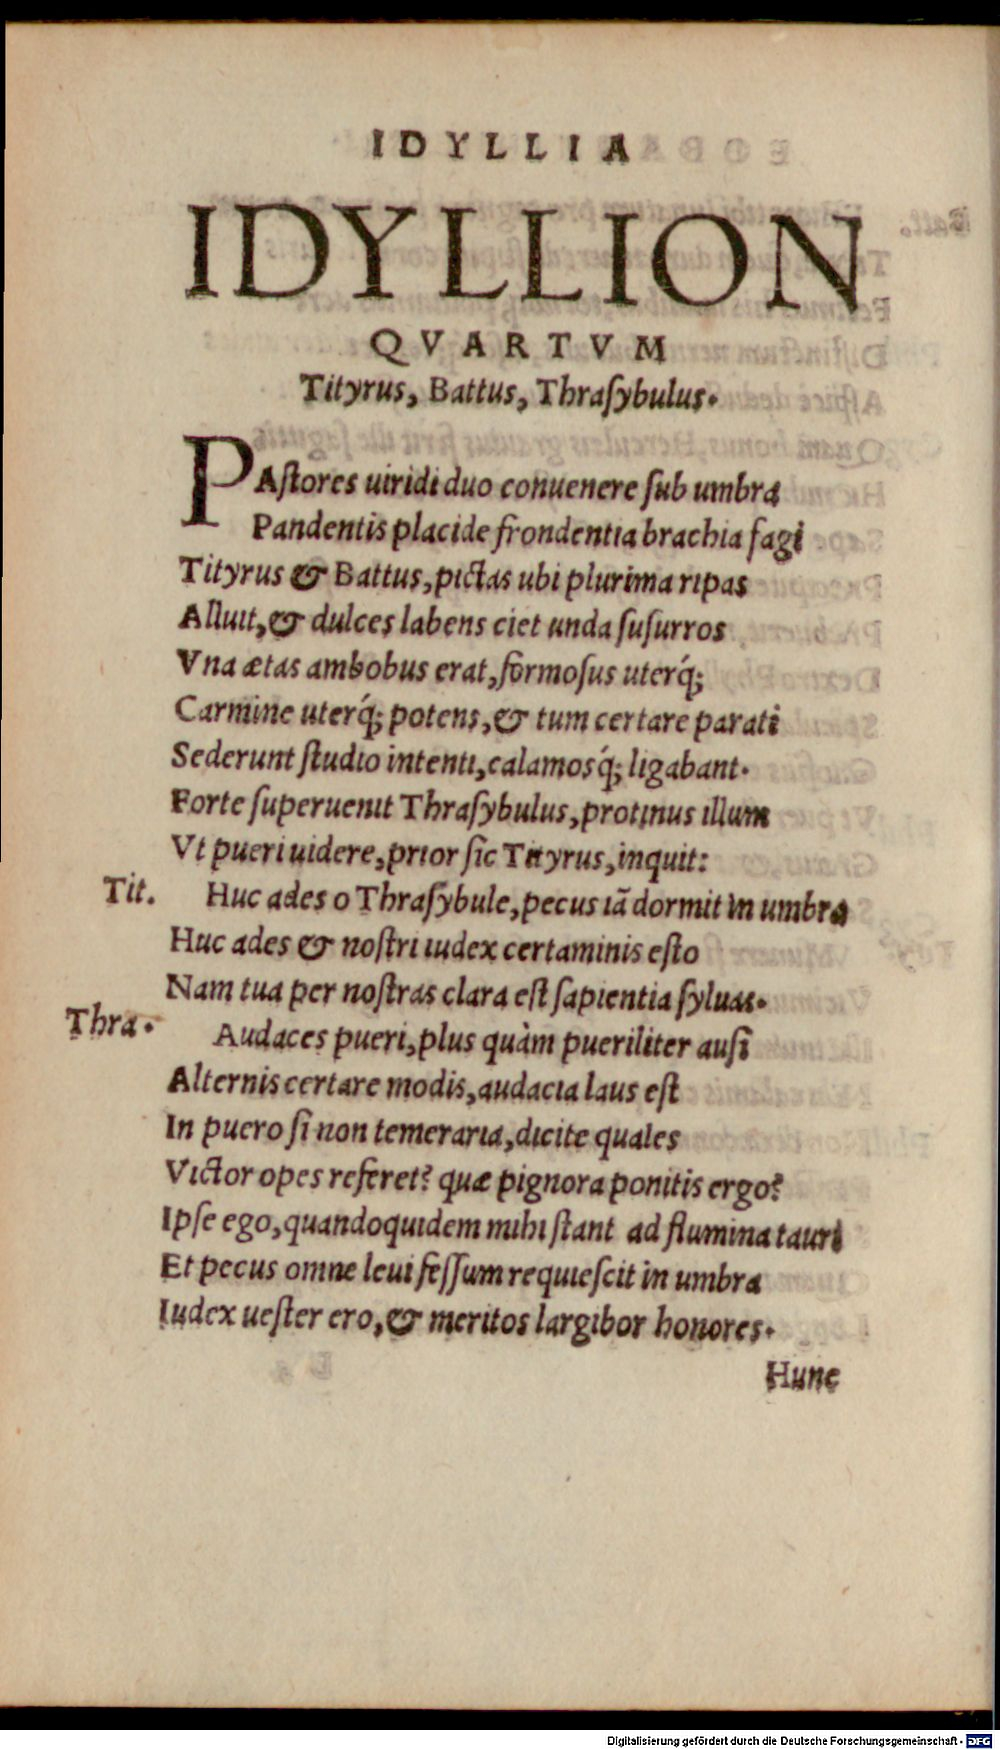 IDYLLIA
IDYLLION
QVARTVM
Tityrus, Battus, Thraſybulus.
PAſtores uiridi duo conuenere ſub umbra
Pandentis placide frondentia brachia fagi
Tityrus & Battus, pictas ubi plurima ripas
Alluit, & dulces labens ciet unda ſuſurros
Vna ætas ambobus erat, formoſus uterq́;
Carmine uterq́; potens, & tum certare parati
Sederunt ſtudio intenti, calamosq́; ligabant.
Forte ſuperuenit Thraſybulus, protinus illum
Vt pueri uidere, prior ſic Tityrus, inquit:
Tit. Huc ades o Thraſybule, pecus iã dormit in umbra
Huc ades & noſtri iudex certaminis eſto
Nam tua per noſtras clara eſt ſapientia ſyluas.
Thra. Audaces pueri, plus quàm pueriliter auſi
Alternis certare modis, audacia laus eſt
In puero ſi non temeraria, dicite quales
Victor opes referet? quæ pignora ponitis ergo?
Ipſe ego, quandoquidem mihi ſtant ad flumina tauri
Et pecus omne leui feſſum requieſcit in umbra
Iudex ueſter ero, & meritos largibor honores.
Hunc
Digitalisierung gefördert durch die Deutsche Forschungsgemeinschaft - DFG